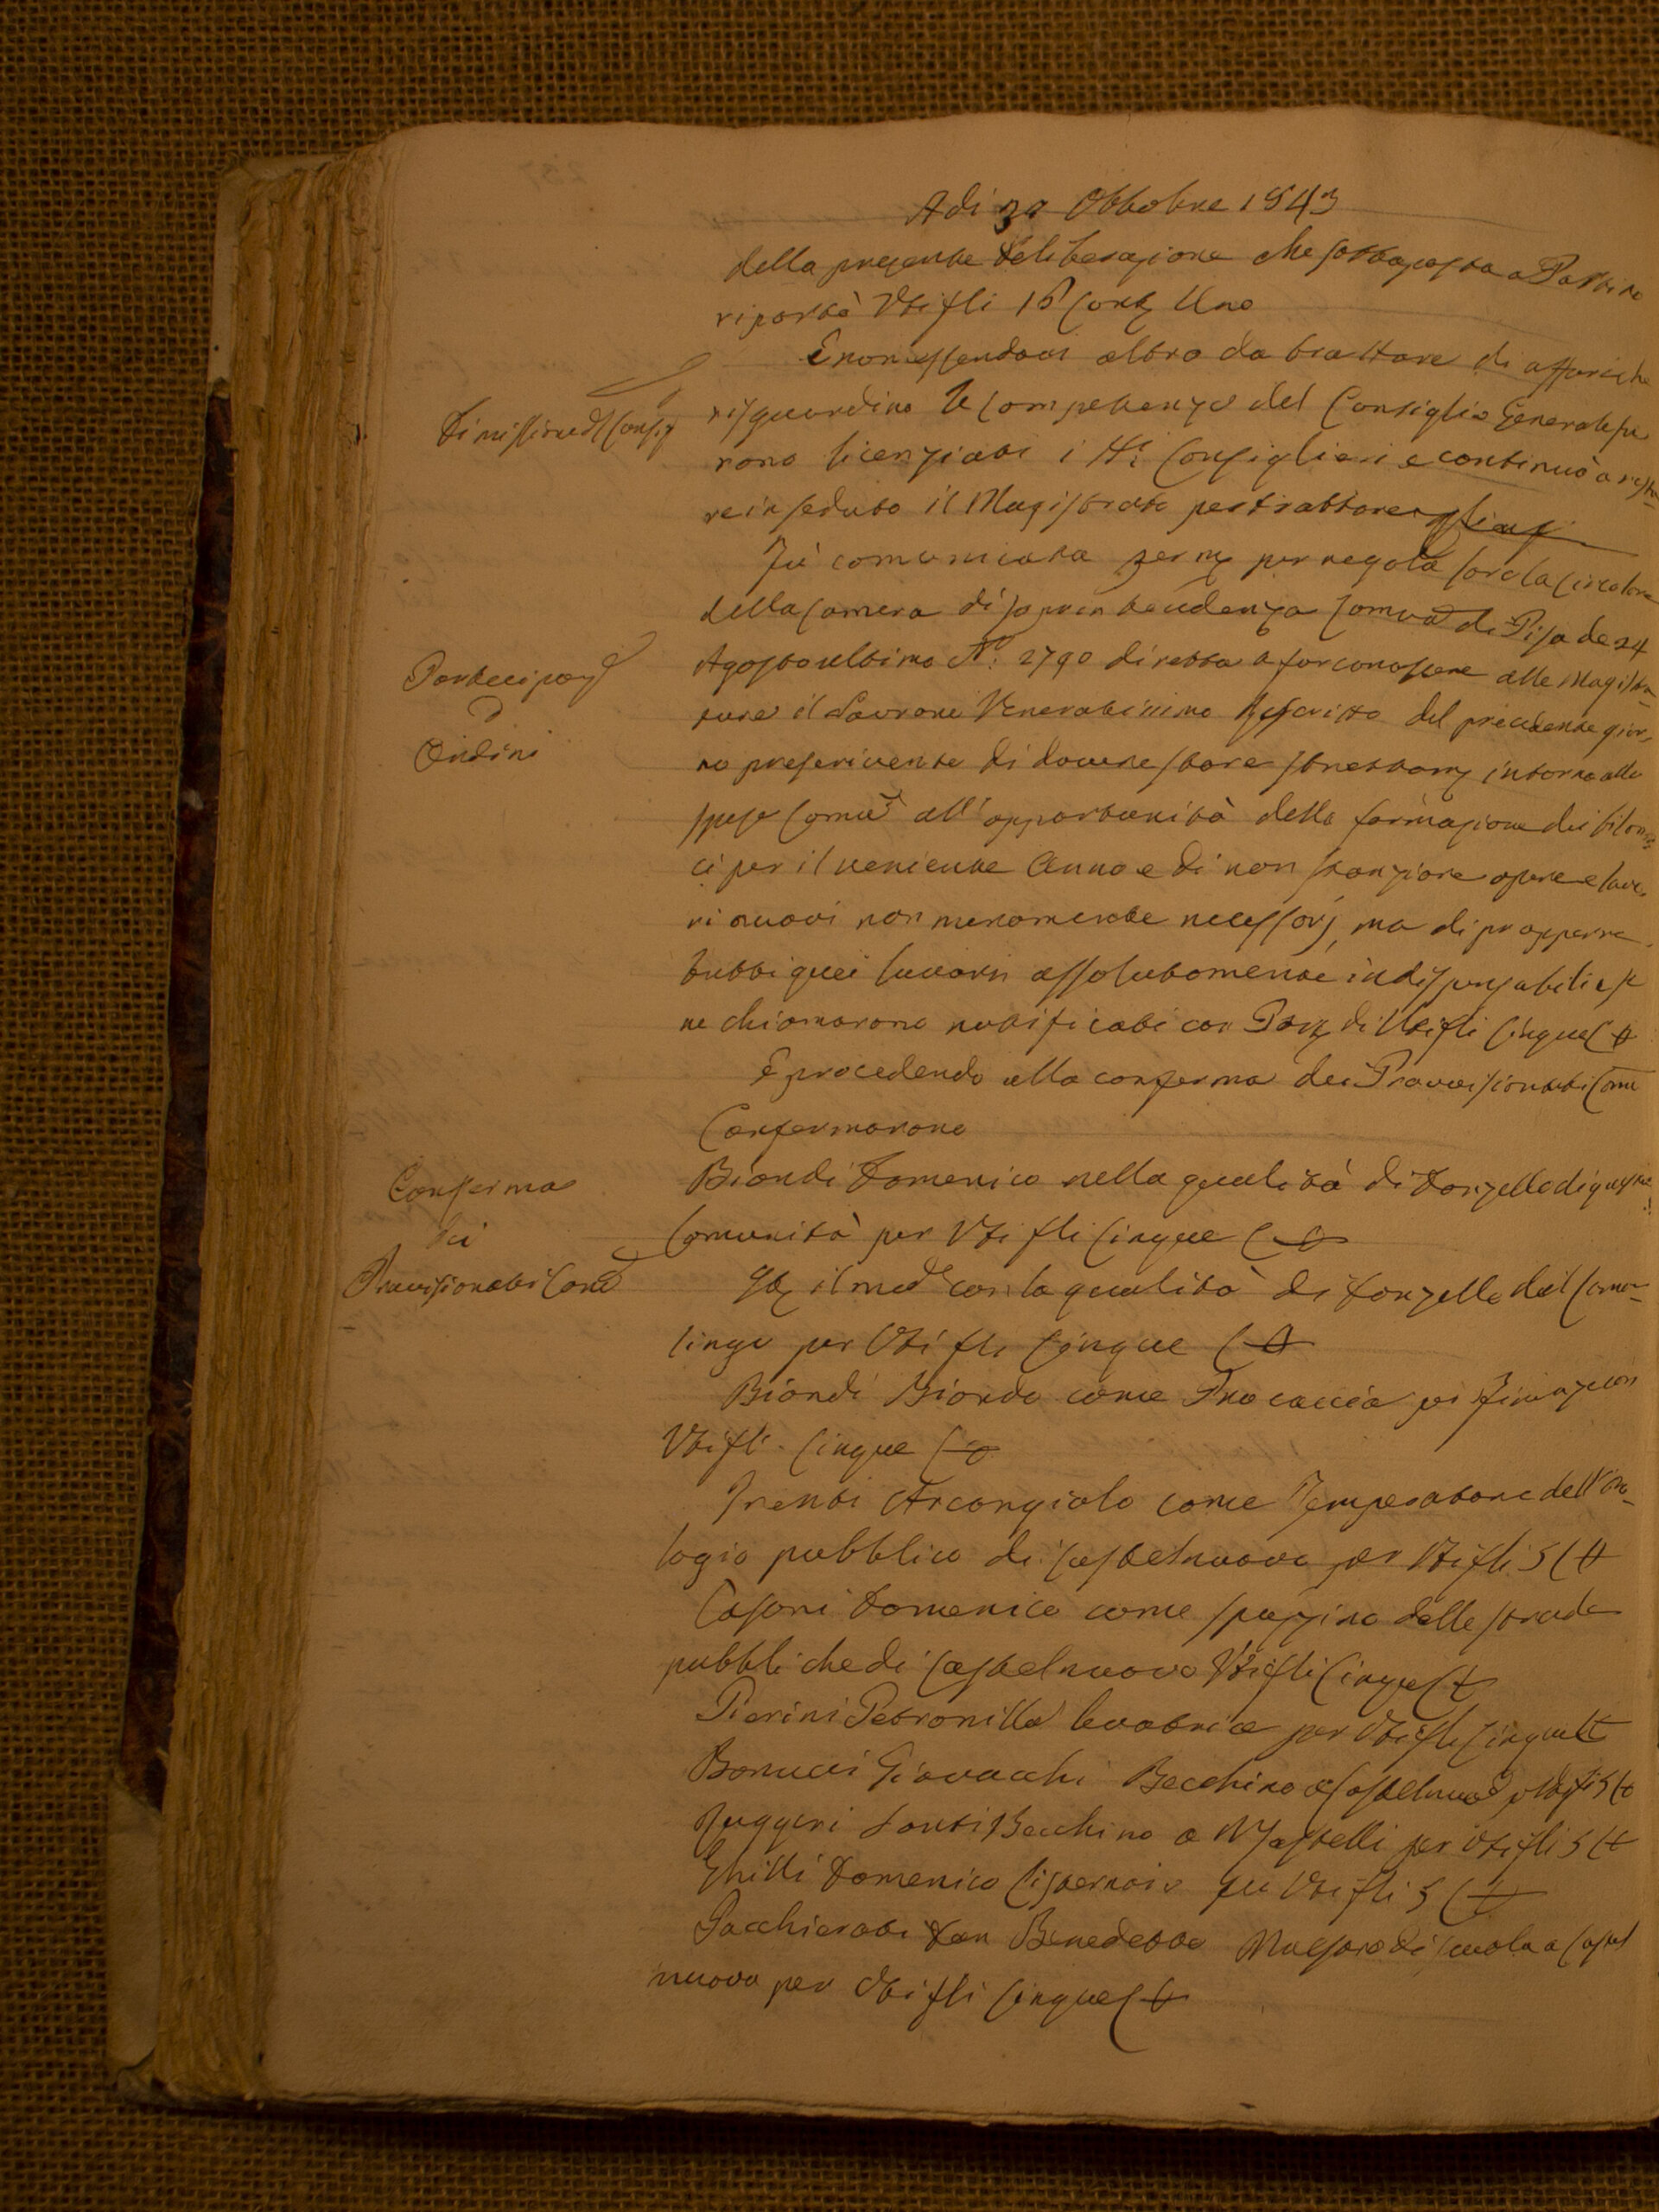 Adi 30 Ottobre 1843
della presente Deliberazione che sottoposta a Partito
riportò Vti fli 15 Cont. Uno
E non essendovi altro da trattare di affari che
Dimissione dl Consig
risguardino le Competenze del Consiglio Generale fu
rono licenziati i SS.i Consiglieri e continuò a resta
re in seduta il Magistrato per trattare
Fù comunicata per regola la Circolare
della Camera di Soprintendenza Comva di Pisa de 24
Partecipaze
d
Ordini
Agosto ultimo N: 2790 diretta a far conoscere alle Magistra
ture il Sovrano Venerabilissimo Rescritto del precedente gior
no prescrivente di dovere stare intorno alle
spese Comve all'opportunità della formazione dei bilan
ci per il veniente Anno e di non stanziare opere e lavo
ri nuovi non meramente necessarj, ma di proporre
tutti quei lavori assolutamente indispensabili e se
ne chiamarono notificati con Parto di Vti fli Cinque C
E procedendo alla conferma dei Provvisionati Come
Confermarono
Conferma
dei
Provisionati Come
Biondi Domenico nella qualità di Donzello di questa
Comunità per Vti fli Cinque C
il med con la qualità di Donzello del Camar
lingo per Vti fli Cinque C
Biondi Biondo come Procaccia per Firenze con
Vti fli Cinque C
Trenti Arcangiolo come Temperatore dell'Oro
logio pubblico di Castelnuovo per Vti fli 5 C
Casoni Domenico come spazzino delle strade
pubbliche di Castelnuovo Vti fli Cinque C
Pierini Petronilla levatrice per Vti fli Cinque C
Bonucci Giovacchi Becchino a Castelnuovo p Vti fli 5 C
Ruggeri Santi Becchino a Mastelli per Vti fli 5 C
Ghilli Domenico Cisternaio per Vti fli 5 C
Pacchierotti Don Benedetto Maestro di scuola a Castel
nuovo per Vti fli Cinque C